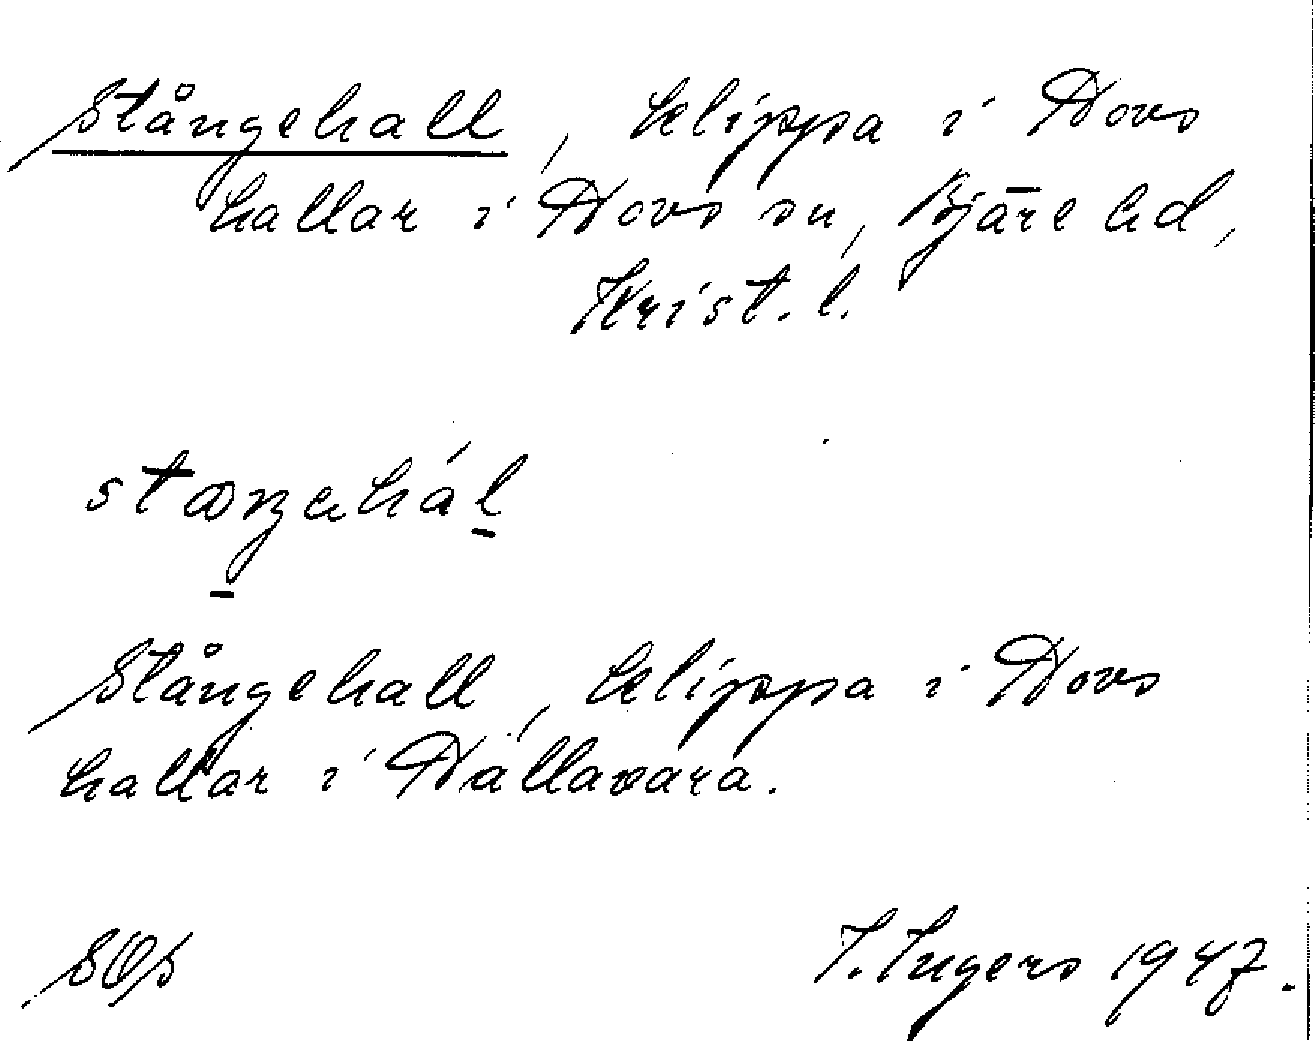 Stångehall, klippa i Hovs
hallar i Hovs sn, Bjäre hd,
Krist. l.
Stångehall, klippa i Hovs
hallar i Hallavara.
I. Ingers 1947.